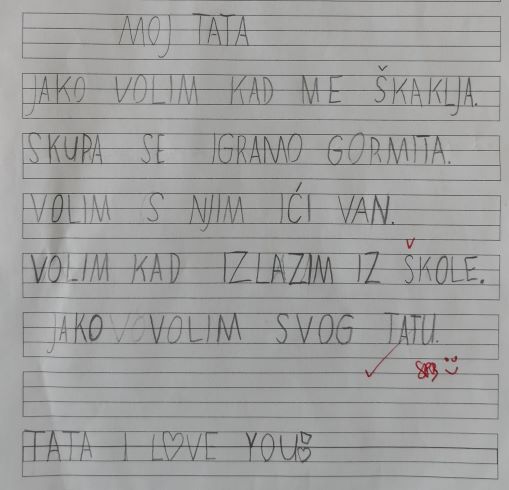 MOJ TATA
JAKO VOLIM KAD ME ŠKAKLJA.
SKUPA SE IGRAMO GORMITA.
VOLIM S NJIM IĆI VAN.
VOLIM KAD IZLAZIM IZ ŠKOLE.
JAKO VOVOLIM SVOG TATU.
TATA I L♡VE YOU